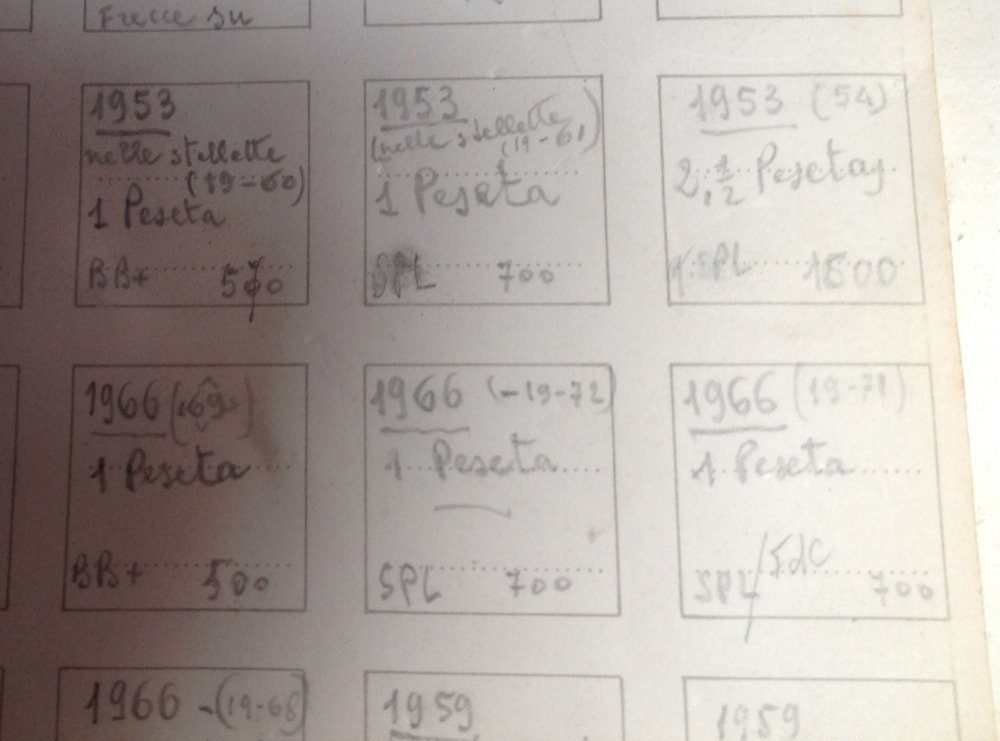 Frecce su
1953
nelle stellette
(19-60)
1 Peseta
BB+ 500
1953
(nelle stellette
(19-61)
1 Peseta
SPL 700
1953 (54)
2,1/2 Pesetas
SPL 1500
1966 (69)
1 Peseta
BB+ 500
1966 (-19-72)
1 Peseta
SPL 700
1966 (19-71)
1 Peseta
SPL/FdC 700
1966 -(19-68)
1959
1959